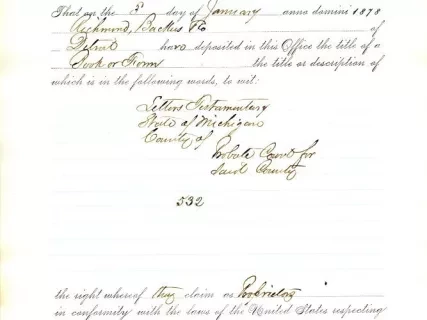 That on the 5 day of January anno domini 1878
Richmond, Backus & Co of
Detroit have deposited in this Office the title of a
Book or Form the title or description of
which is in the following words, to wit:
Letters Testamentary
State of Michigan
County of
Probate Court for
Said County
532
the right whereof they claim as Proprietors
in conformity with the laws of the United States respecting